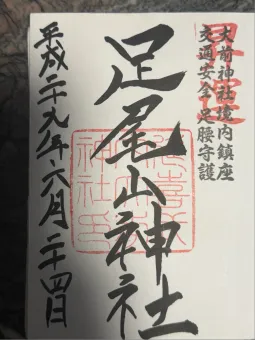 大前神社境内鎮座
交通安全足腰守護
足尾山神社
平成二十九年六月二十四日